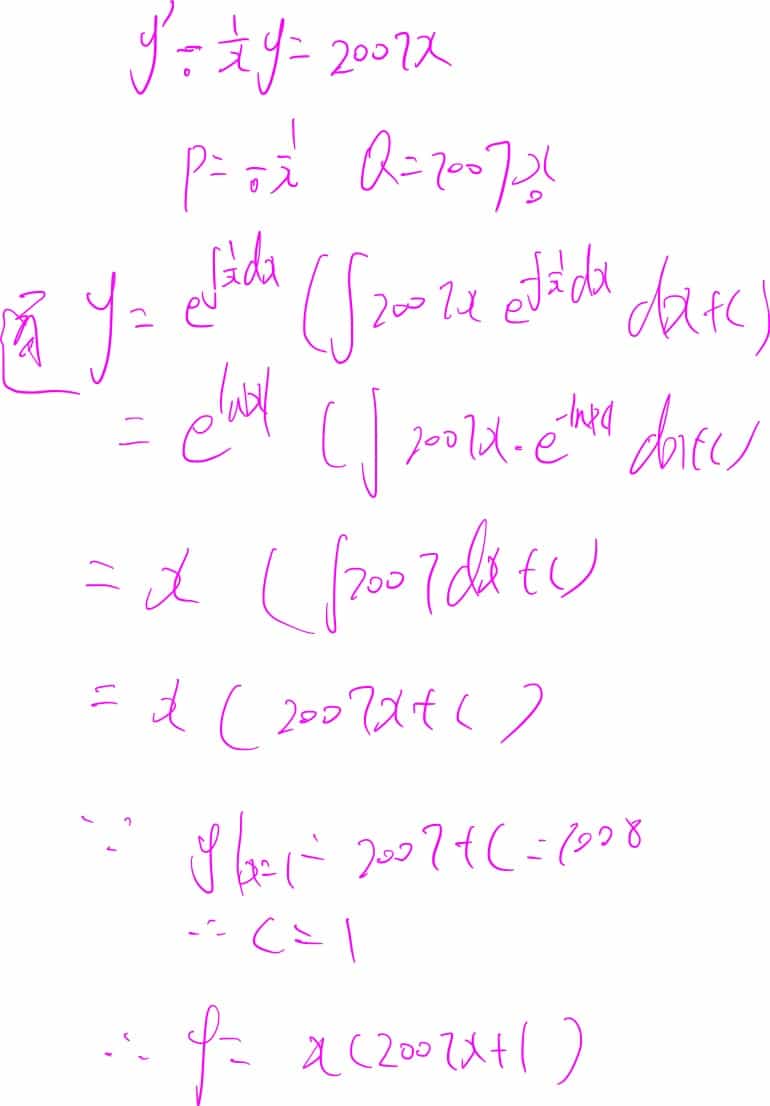 y' - 1/x y = 2007x
P = - 1/x Q = 2007x
通 y = e^{∫1/x dx} (∫2007x e^{∫-1/x dx} dx + C)
= e^{ln|x|} (∫2007x · e^{-ln|x|} dx + C)
= x (∫2007dx + C)
= x (2007x + C)
∵ y|x=1 = 2007 + C = 2008
∴ C = 1
∴ y = x(2007x + 1)